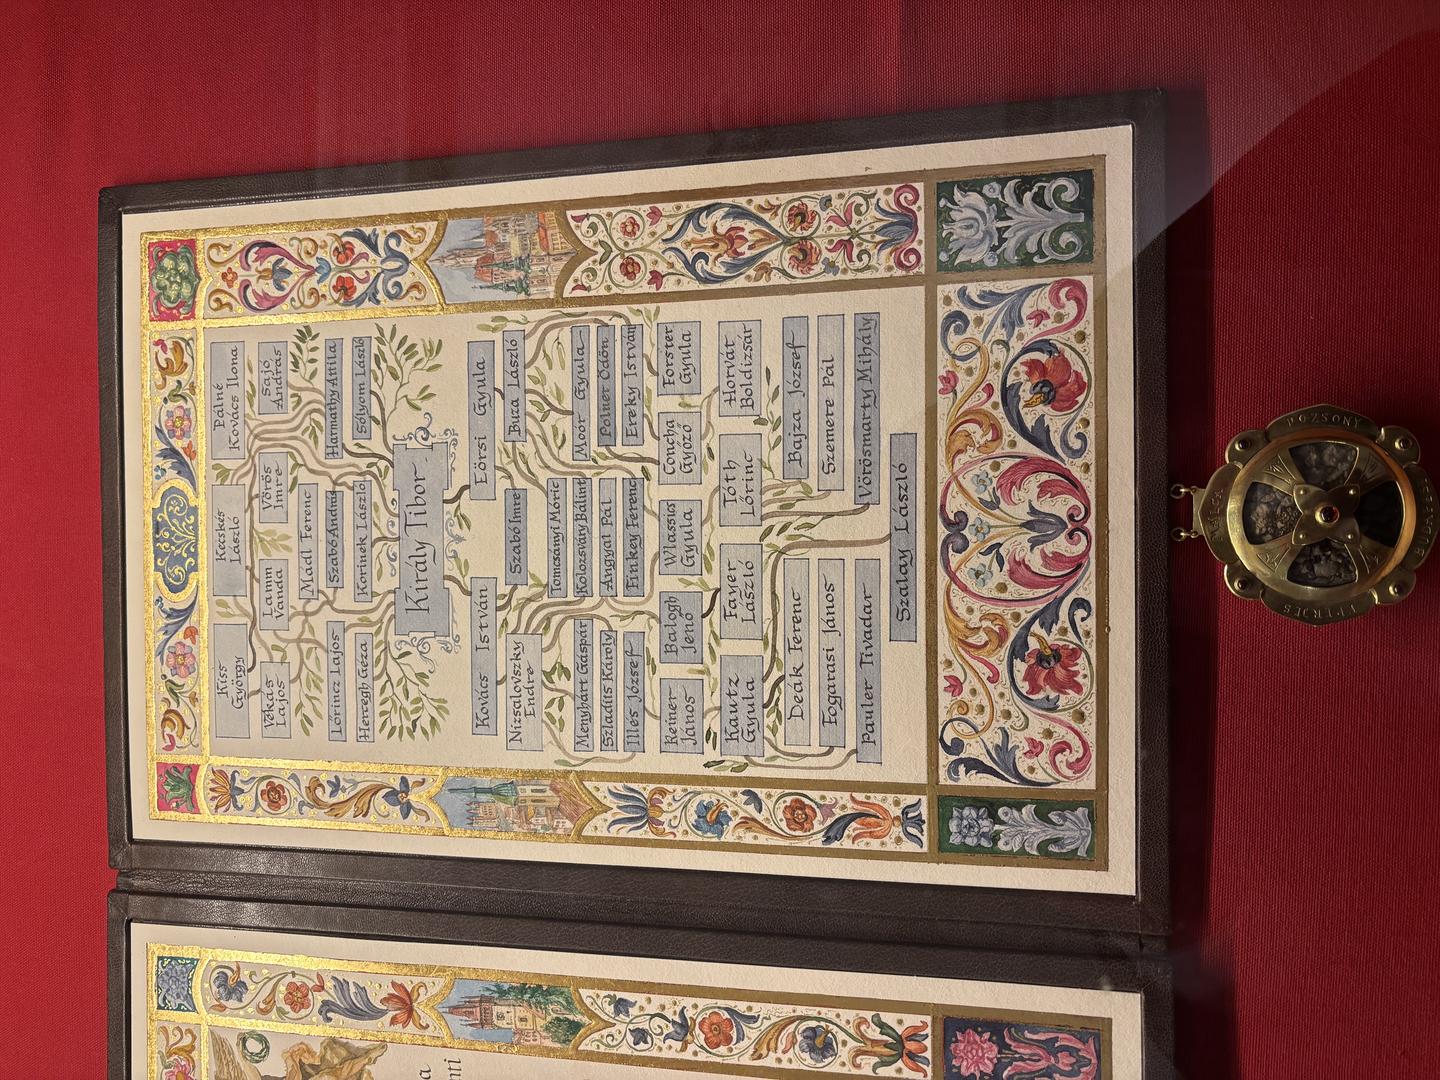 Kiss
György
Kecskés
László
Pálné
Kovács Ilona
Vékás
Lajos
Lamm
Vanda
Vörös
Imre
Sajó
András
Mádl Ferenc
Lőrincz Lajos
Szabó András
Harmathy Attila
Herczegh Géza
Korinek László
Sólyom László
Király Tibor
Kovács István
Eörsi Gyula
Nizsalovszky
Endre
Szabó Imre
Buza László
Tomcsányi Móric
Menyhárt Gáspár
Kolozsváry Bálint
Moór Gyula
Szladits Károly
Angyal Pál
Polner Ödön
Illés József
Finkey Ferenc
Ereky István
Reiner
János
Balogh
Jenő
Wlassics
Gyula
Concha
Győző
Forster
Gyula
Kautz
Gyula
Fayer
László
Tóth
Lőrinc
Horvát
Boldizsár
Deák Ferenc
Bajza József
Fogarasi János
Szemere Pál
Pauler Tivadar
Vörösmarty Mihály
Szalay László
POZSONY
EPERJES